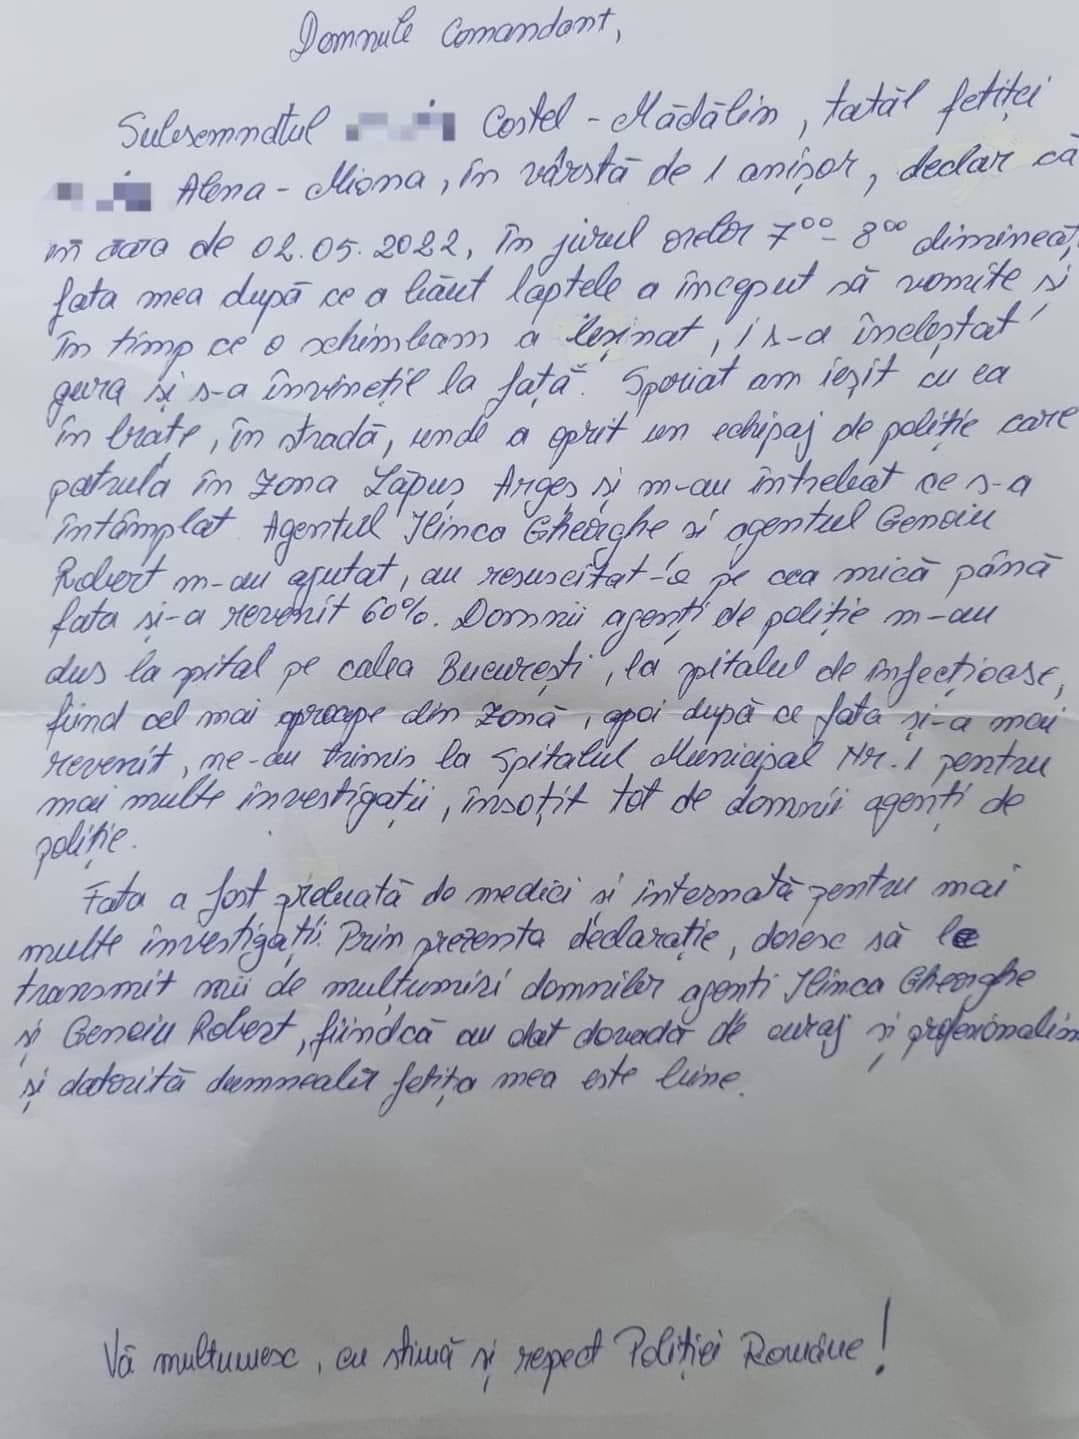 Domnule Comandant,
Subsemnatul Costel - Mădălin, tatăl fetiței
Alena - Miona, în vârstă de 1 anișor, declar că
în data de 02.05.2022, în jurul orelor 7⁰⁰ - 8⁰⁰ dimineaț
fata mea după ce a băut laptele a început să vomite și
în timp ce o schimbam a leșinat, i s-a încleștat
gura și s-a învinețit la față. Speriat am ieșit cu ea
în brațe, în stradă, unde a oprit un echipaj de poliție care
patrula în zona Lăpuș Argeș și m-au întrebat ce s-a
întâmplat. Agentul Ilinca Gheorghe și agentul Genoiu
Robert m-au ajutat, au resuscitat-o pe cea mică până
fata și-a revenit 60%. Domnii agenți de poliție m-au
dus la spital pe calea București, la spitalul de infecțioase,
fiind cel mai aproape din zonă, apoi după ce fata și-a mai
revenit, ne-au trimis la Spitalul Municipal Nr. 1 pentru
mai multe investigații, însoțit tot de domnii agenți de
poliție.
Fata a fost preluată de medici și internată pentru mai
multe investigații. Prin prezenta declarație, doresc să le
transmit mii de multumiri domnilor agenti Ilinca Gheorghe
și Genoiu Robert, fiindcă au dat dovadă de curaj și profesionalism
și datorită dumnealor fetița mea este bine.
Vă multumesc, cu stimă și respect Poliției Române!